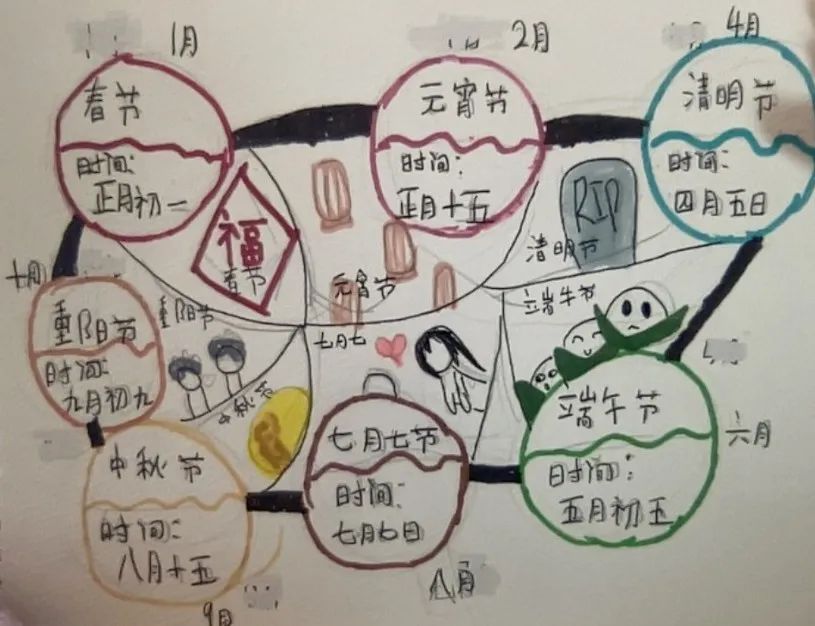 1月
2月
4月
春节
时间:
正月初一
元宵节
时间:
正月十五
清明节
时间:
四月五日
福
春节
元宵节
RIP
清明节
十月
重阳节
时间:
九月初九
重阳节
七月七
端午节
中秋节
中秋节
时间:
八月十五
9月
七月七节
时间:
七月七日
八月
端午节
时间:
五月初五
六月